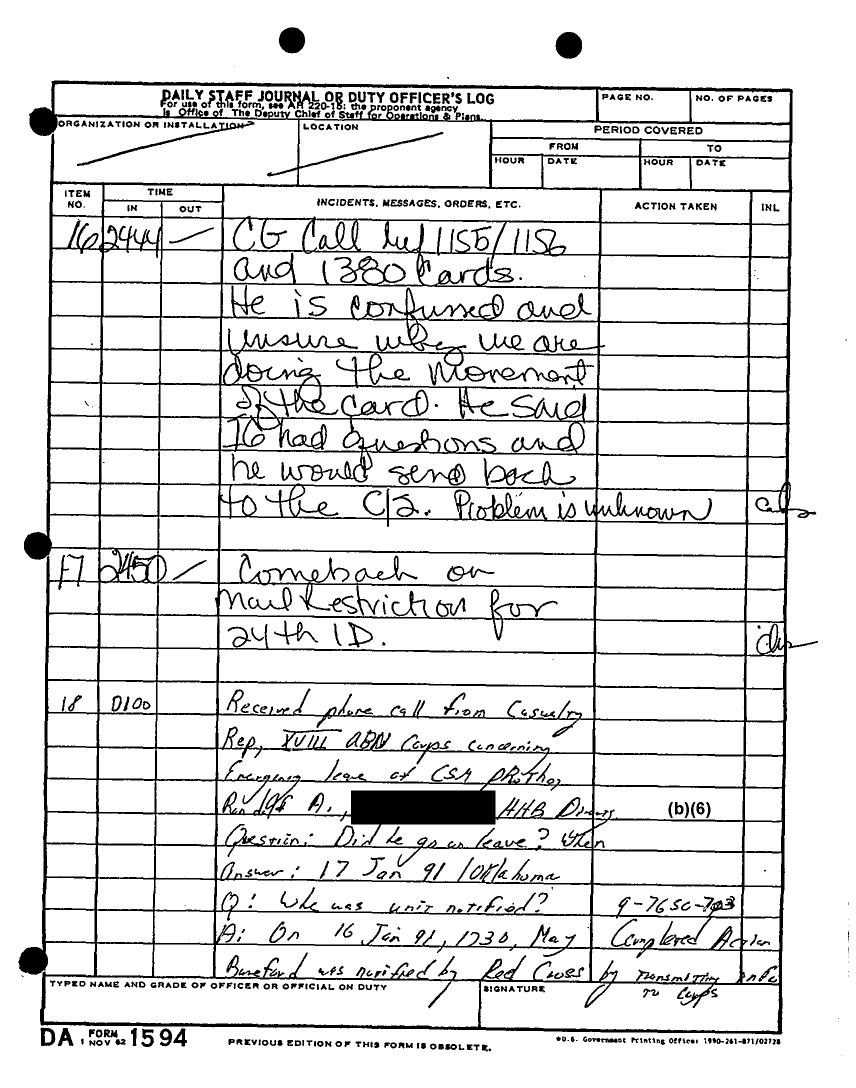 DAILY STAFF JOURNAL OR DUTY OFFICER'S LOG
For use of this form, see AR 220-15; the proponent agency
is Office of The Deputy Chief of Staff for Operations & Plans.
PAGE NO.
NO. OF PAGES
ORGANIZATION OR INSTALLATION
LOCATION
PERIOD COVERED
FROM
TO
HOUR
DATE
HOUR
DATE
ITEM NO.
TIME
IN
OUT
INCIDENTS, MESSAGES, ORDERS, ETC.
ACTION TAKEN
INL
16 2444 — CG Call 1155/1156
and 1380 Cards.
He is confused and
unsure why we are
doing the movement
of the card. He said
IG had questions and
he would send back
to the C/S. Problem is unknown
17 2450 — Comeback on
Mail Restriction for
24th ID.
18 0100 Received phone call from Casualty
Rep, XVIII ABN Corps concerning
Emergency leave of CSM
A., HHB (b)(6)
Question: Did he go on leave? When
Answer: 17 Jan 91 / Oklahoma
Q: was unit notified? 9-7650-
A: On 16 Jan 91, 1730, Completed Action
was notified by Red Cross by Transmitting info
to Corps
TYPED NAME AND GRADE OF OFFICER OR OFFICIAL ON DUTY
SIGNATURE
DA FORM 1 NOV 62 1594
PREVIOUS EDITION OF THIS FORM IS OBSOLETE.
*U.S. Government Printing Office: 1990-261-871/02728